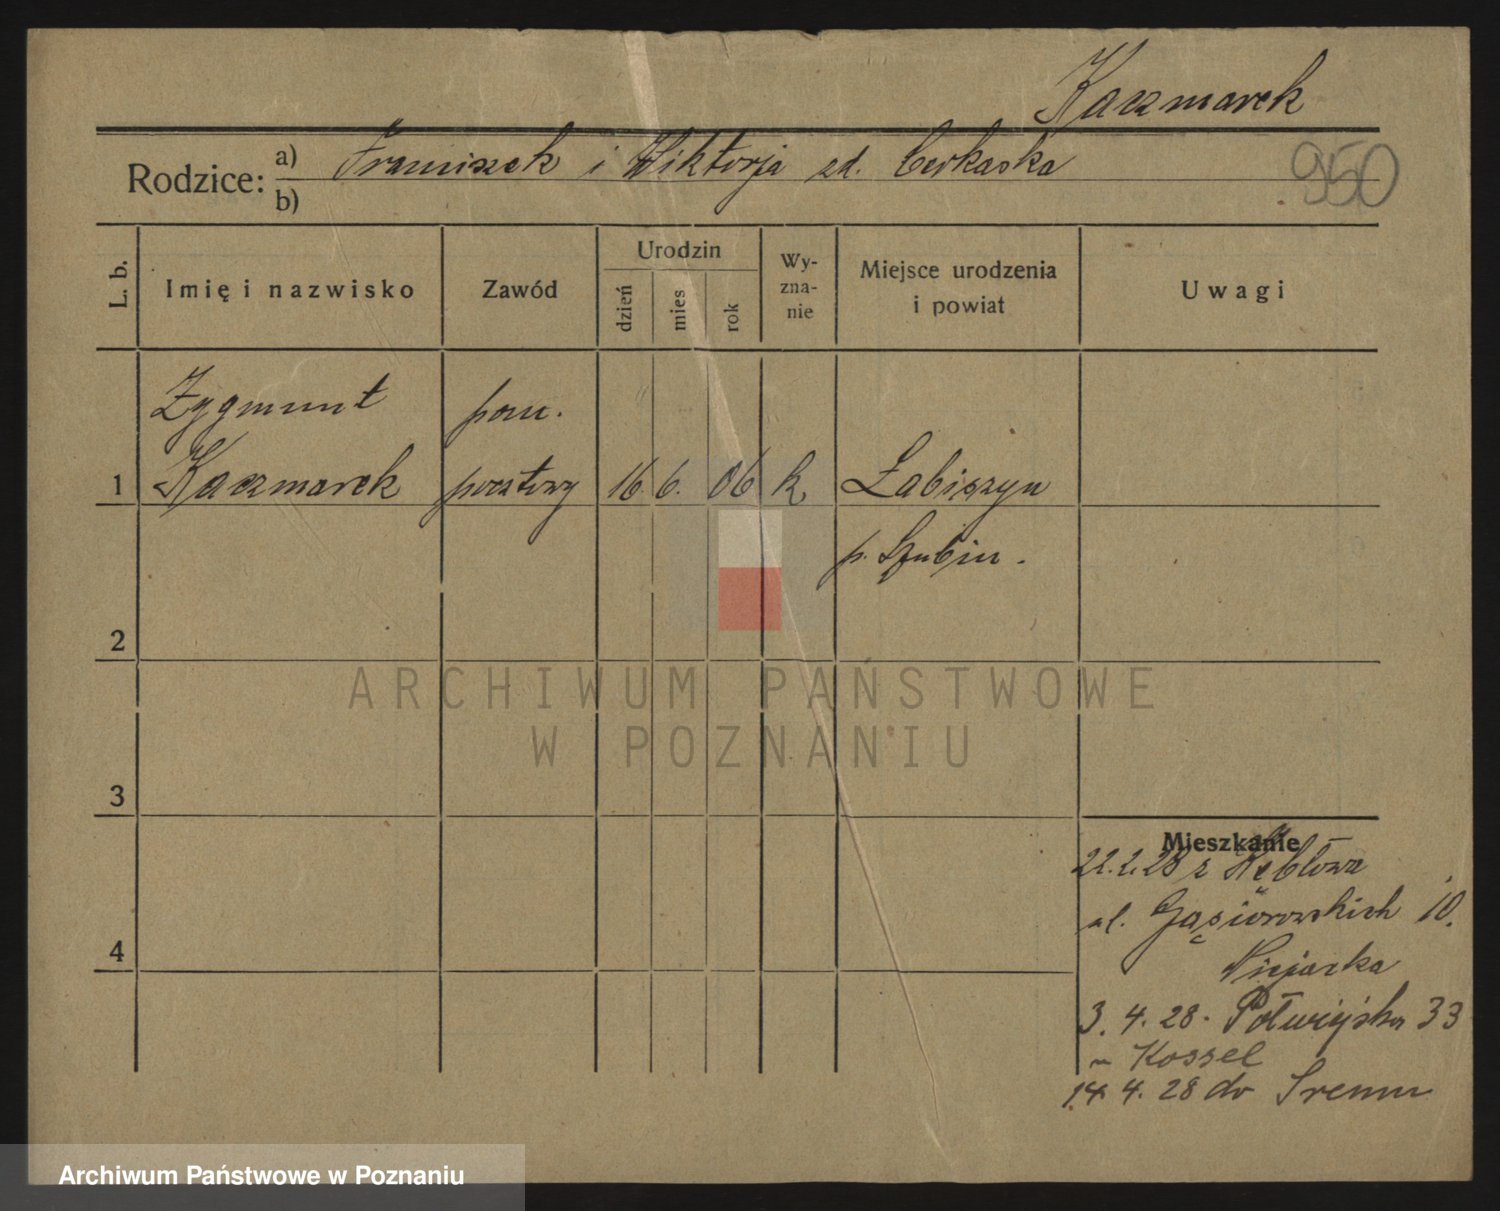 Kaczmarek
Rodzice: a) Franciszek i Wiktorja zd. Cerkaska
b)
950
L. b.
Imię i nazwisko
Zawód
Urodzin
dzień
mies
rok
Wy-
zna-
nie
Miejsce urodzenia
i powiat
Uwagi
Zygmunt pom.
1 Kaczmarek pocztowy 16. 6. 06 k. Łabiszyn
p. Szubin.
2
ARCHIWUM PAŃSTWOWE
W POZNANIU
3
Mieszkanie
22.2.28 z Kębłowa
ul. Gąsiorowskich 10.
3. 4. 28. Półwiejska 33
Kossel
14. 4. 28 do Śremu
4
Archiwum Państwowe w Poznaniu